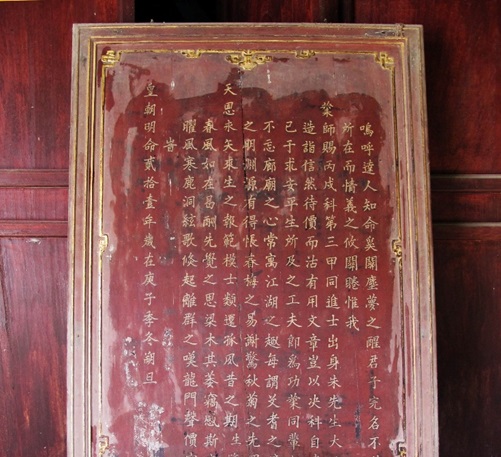 嗚呼達人知命奚關塵夢之醒君子完名不
所在而情義之攸關睠惟我
業師賜丙戌科第三甲同進士出身朱先生大
造詣信然待價而沽有用文章豈以決科自
己于求安平生所及之工夫即為功業同黨
不忘廊廟之心常寓江湖之趣每謂災耆之
之朝淵源有得悵春歸之易謝驚秋菊之先
天恩未矢來生之報範模士類還添風昔之期生
春風如在曷酬先覺之思梁木其萎竊歎斯
曜風寒鹿洞絃歌倏起離群之嘆龍門聲價
旹
皇朝明命貳拾壹年歲在庚子季冬朔旦